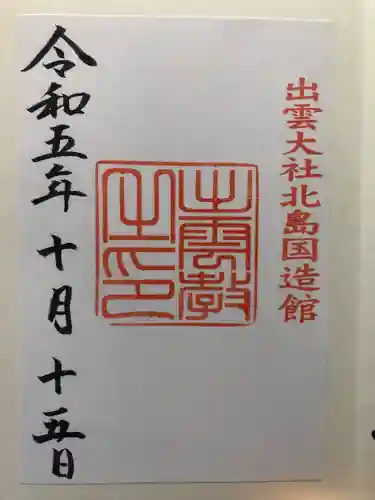 出雲大社北島国造館
出雲教
之印
令和五年十月十五日